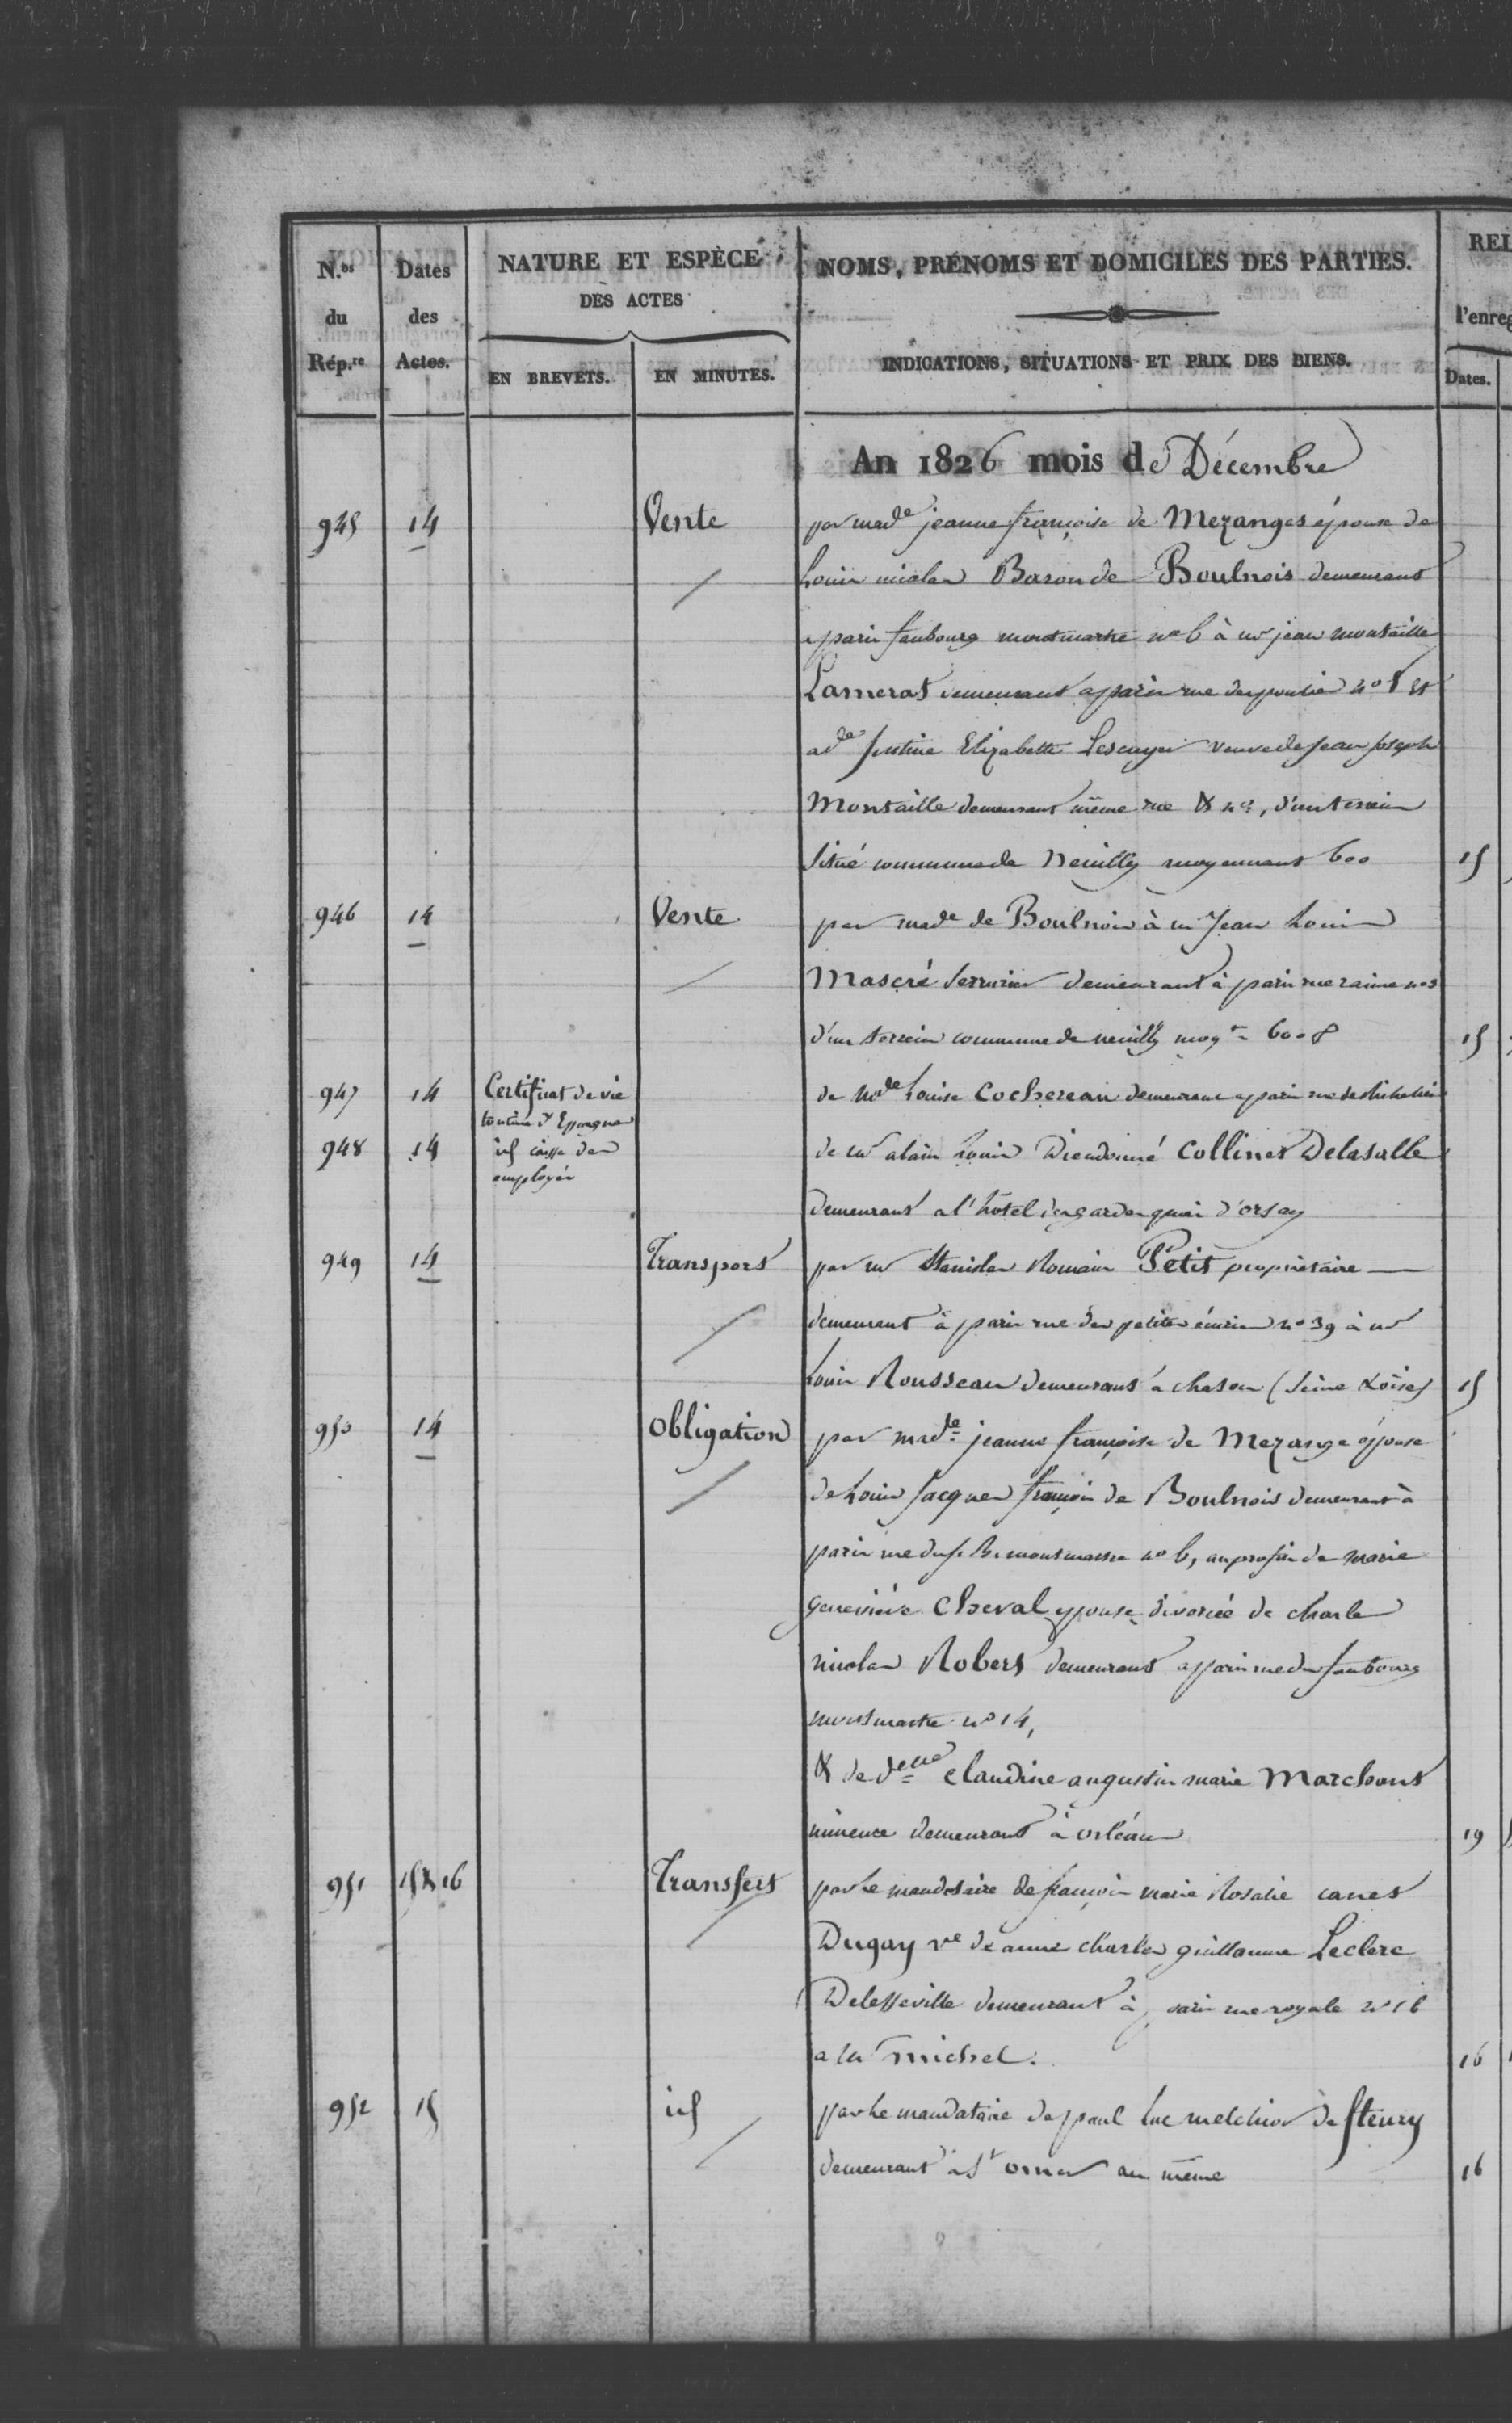 N.os du Rép.re
Dates des Actes.
NATURE ET ESPÈCE DES ACTES
EN BREVETS.
EN MINUTES.
NOMS, PRÉNOMS ET DOMICILES DES PARTIES.
INDICATIONS, SITUATIONS ET PRIX DES BIENS.
REL
l'enreg
Dates.
An 1826 mois de Décembre
945 14 Vente par made jeanne françoise de Mezanges épouse de
Louis nicolas Baron de Boulnois demeurant
a paris faubourg montmartre no 6 à mr jean montaille
Lamerat demeurant a paris rue no 8 et
a de Justine Elizabette Lescuyer veuve de Jean Joseph
Montaille demeurant même rue & no, d'un terrein
situé commune de Neuilly moyennant 600 15
946 14 Vente par made de Boulnois à m Jean Louis
Mascré serrurier demeurant à paris rue no 3
d'un terrein commune de neuilly moyt 600 f 15
947 14 Certificat de vie de mde Louise Cochereau demeurant a paris rue de Richelieu
tontine d'Epargne
948 14 id caisse des de mr alain Louis Dieudonné Collinet Delasalle
employés
demeurant a l'hôtel des gardes quai d'orsay
949 14 Transport par mr Stanislas Romain Petit propriétaire
demeurant à paris rue des petites écuries no 39 à mr
Louis Rousseau demeurant à chatou (Seine & oise) 15
950 14 Obligation par made jeanne françoise de Mezange épouse
de Louis Jacques françois de Boulnois demeurant à
paris rue du f. Bg montmartre no 6, au profit de marie
geneviève Cheval epouse divorcée de charles
nicolas Robert demeurant a paris rue du faubourg
montmartre no 14,
& de delle claudine augustin marie Marchant
mineure demeurant à orléans 19
951 15 & 16 Transfert par le mandataire de françois marie Rosalie canet
Dugay ve de anne charles guillaume Leclerc
Delesseville demeurant à paris rue royale no 16
a mr michel. 16
952 15 id par le mandataire de paul luc melchior de fleury
demeurant à St omer au même 16